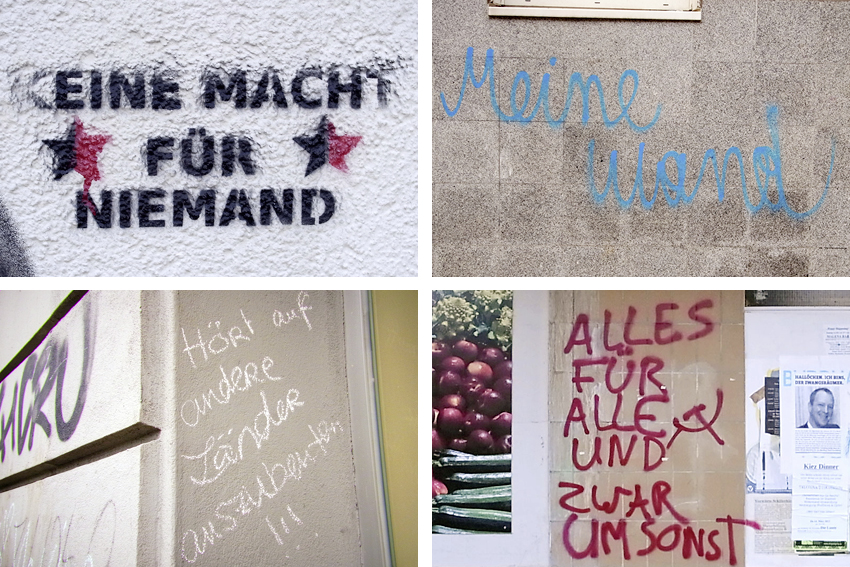 KEINE MACHT
FÜR
NIEMAND
Meine
Wand
Hört auf
andere
Länder
auszubeuten
!!!
ALLES
FÜR
ALLE
UND
ZWAR
UMSONST
HALLÖCHEN, ICH BINS,
DER ZWANGSRÄUMER.
Kiez Dinner